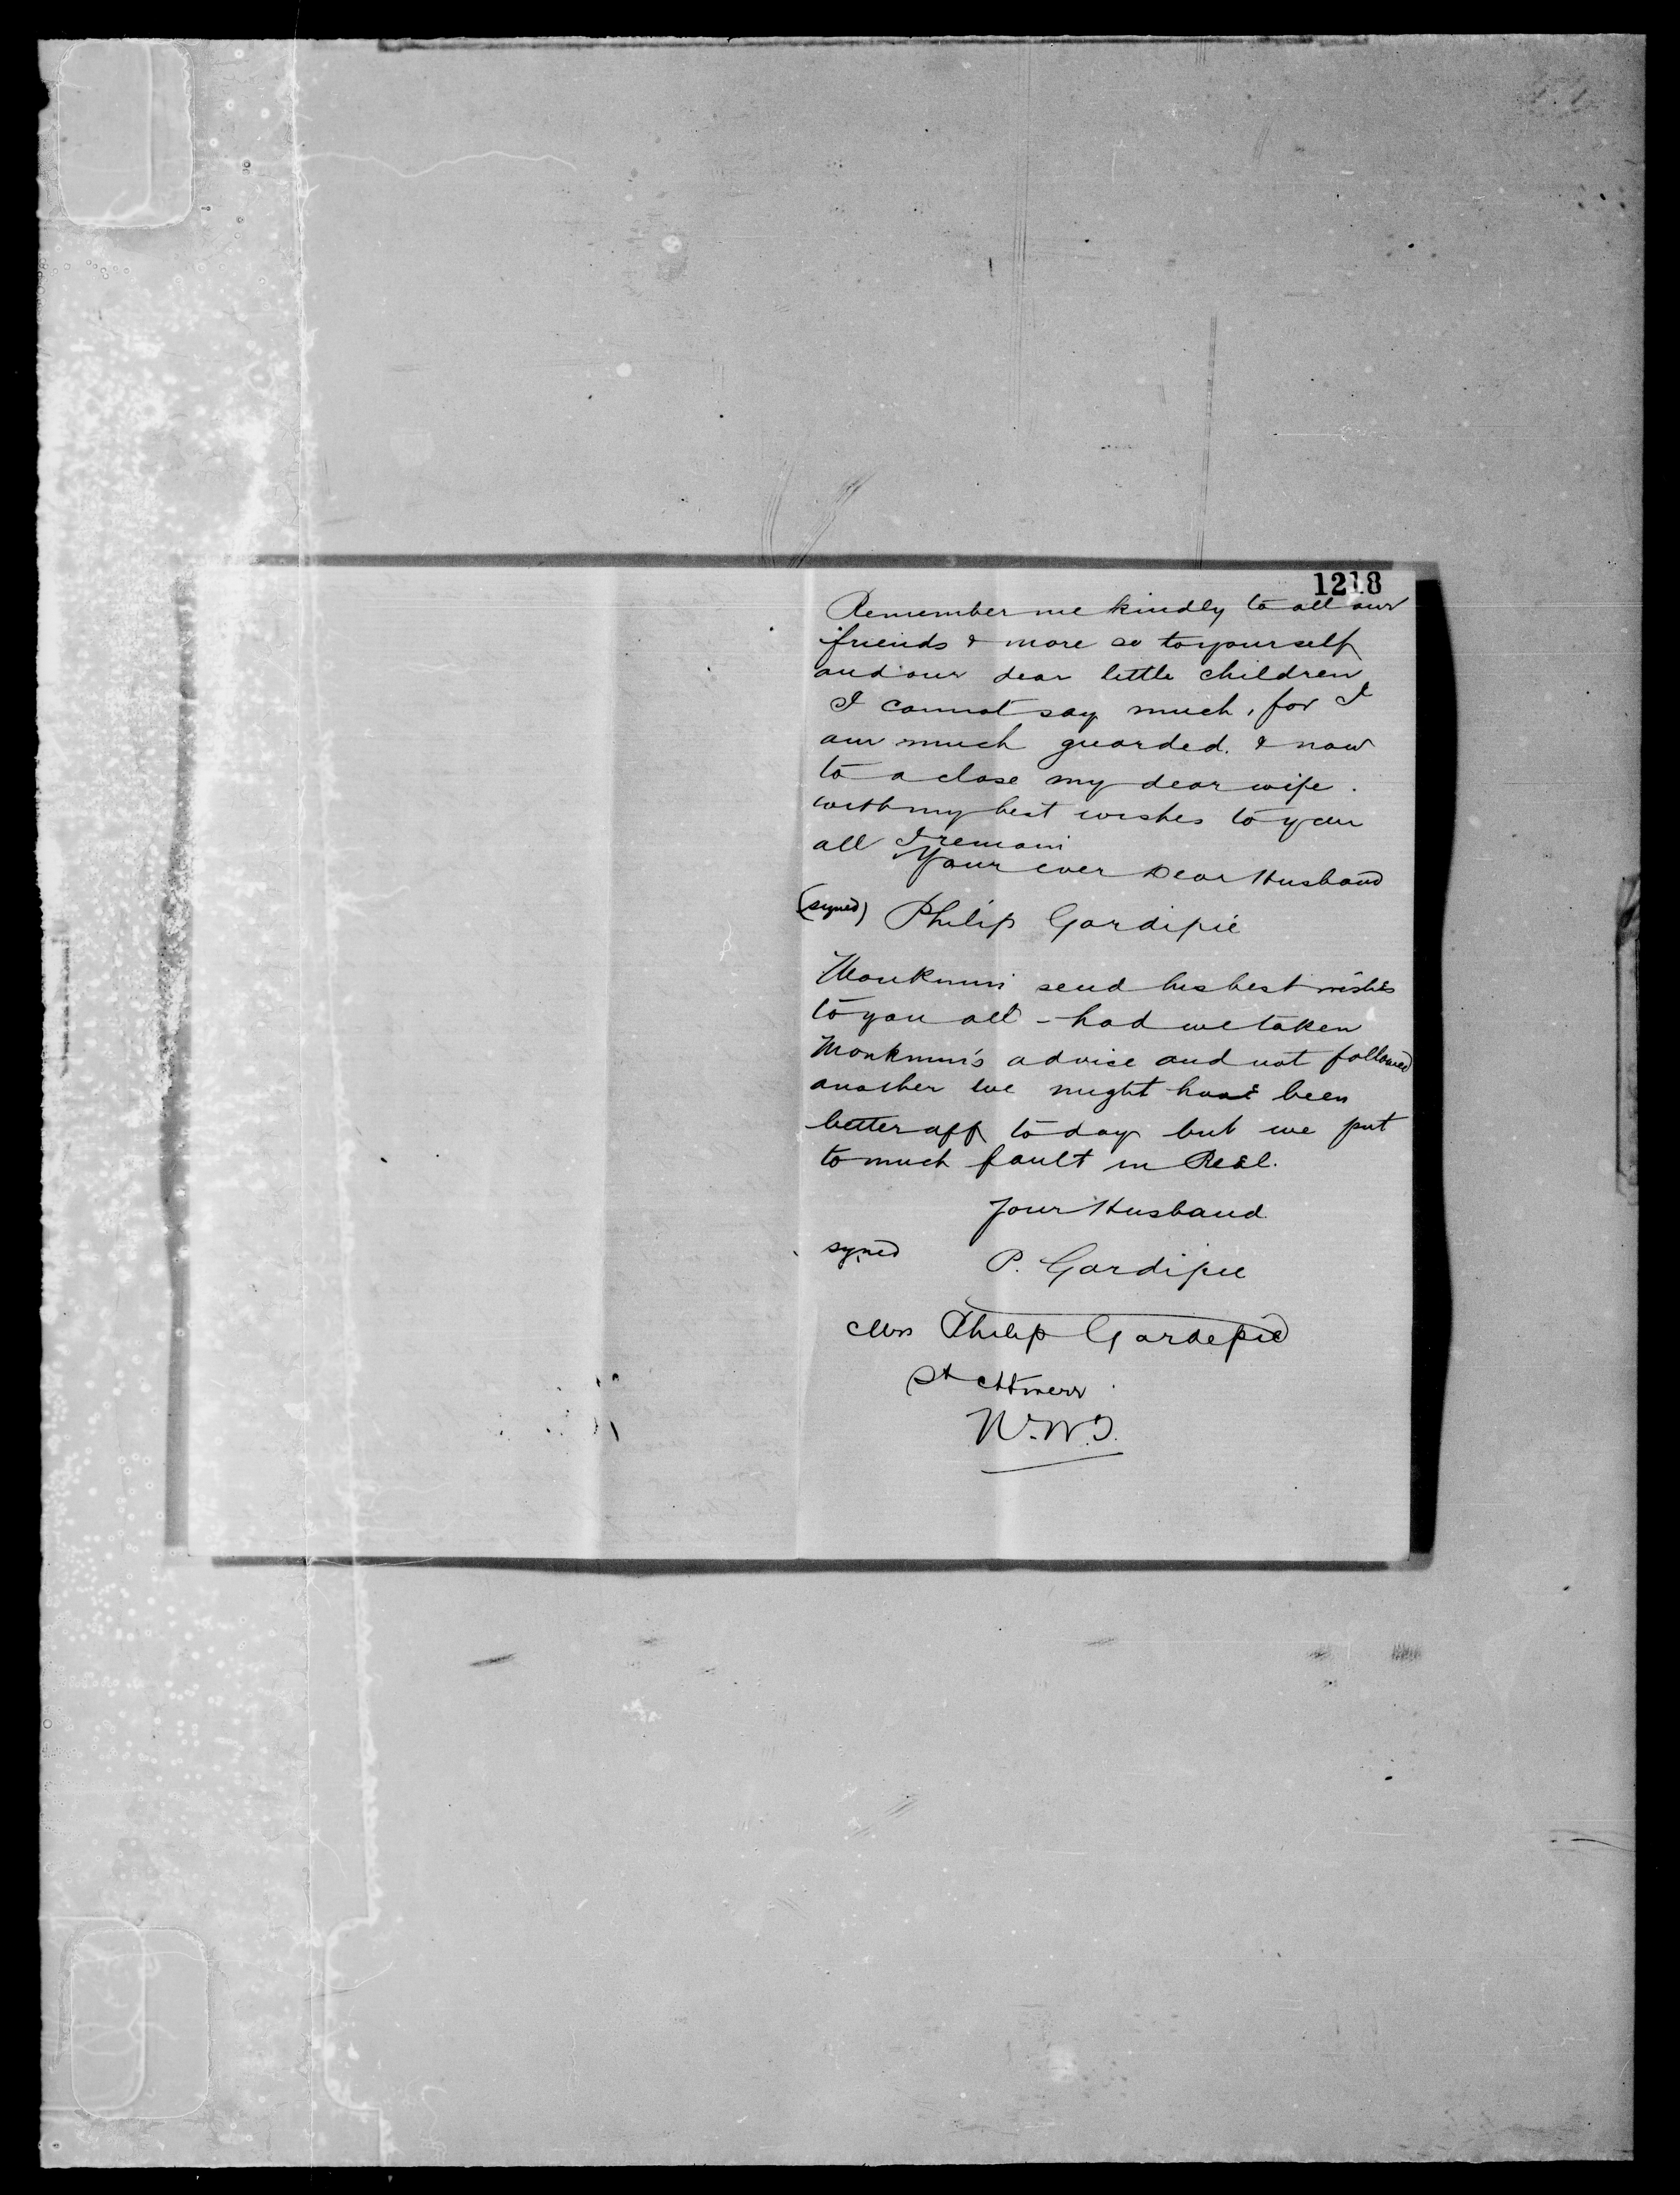 1218
Remember me kindly to all our
friends & more so to yourself
and our dear little children
I cannot say much, for I
am much guarded. & now
to a close my dear wife.
with my best wishes to you
all I remain
Your ever Dear Husband
(signed) Philip Gardipié
Monkmin send his best wishes
to you all - had we taken
Monkmin's advice and not followed
another we might have been
better off to day but we put
to much fault in Reil.
Your Husband
signed P. Gardipie
Mrs Philip Gardepie
St
N.W.T.